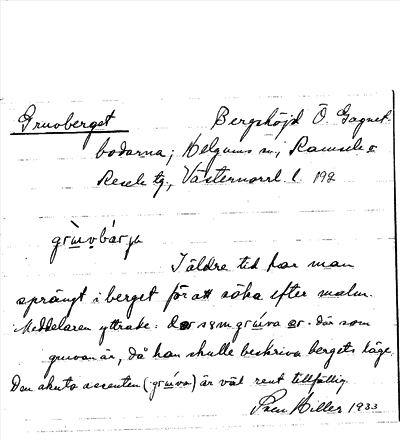 Gruvberget Bergshöjd Ö. Gagnet-
bodarna; Helgums sn; Ramsele o
Resele tg, Västernorrl. l. 192
grùvbárjə
I äldre tid har man
sprängt i berget för att söka efter malm.
Meddelaren yttrade: där som grúva är: där som
gruvan är, då han skulle beskriva bergets läge.
Den akuta accenten (grúva) är väl rent tillfällig.
Hiller 1933